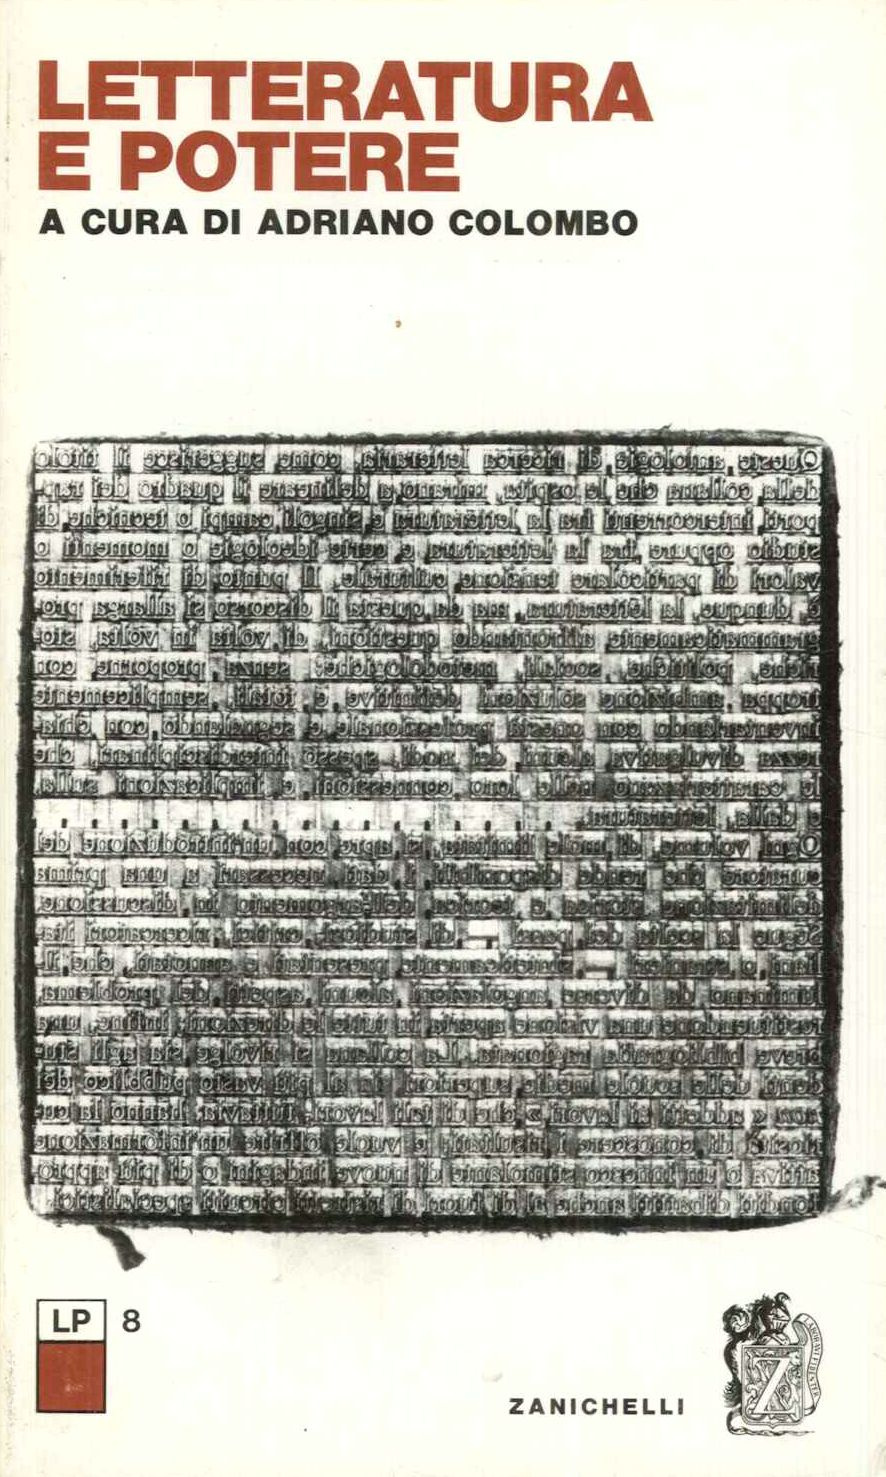 LETTERATURA
E POTERE
A CURA DI ADRIANO COLOMBO
Queste antologie di ricerca letteraria, come suggerisce il titolo
della collana che le ospita, mirano a delineare il quadro dei rap-
porti intercorrenti fra la letteratura e singoli campi o tecniche di
studio oppure fra la letteratura e certe ideologie o momenti o
valori di particolare tensione culturale. Il punto di riferimento
è, dunque, la letteratura, ma da questa il discorso si allarga pro-
grammaticamente affrontando questioni, di volta in volta, sto-
riche, politiche, sociali, metodologiche: senza proporre con
troppa ambizione soluzioni definitive e totali, semplicemente
inventariando con onestà professionale e segnalando, con chia-
rezza divulgativa, alcuni dei nodi, spesso interdisciplinari, che
le caratterizzano nelle loro connessioni e implicazioni sulla,
e dalla, letteratura.
Ogni volume, di mole limitata, si apre con un'introduzione del
curatore che rende disponibili i dati necessari a una prima
definizione storica e teorica dell'argomento in discussione.
Segue la scelta dei pezzi — di studiosi, critici, ricercatori ita-
liani o stranieri —, sinteticamente presentati e annotati, che il-
luminano da diverse angolazioni alcuni aspetti del problema,
restituendone una visione aperta in tutte le direzioni; infine, una
breve bibliografia ragionata. La collana si rivolge sia agli stu-
denti delle scuole medie superiori sia al più vasto pubblico dei
non « addetti ai lavori » che di tali lavori, tuttavia, hanno la cu-
riosità di conoscere i risultati; e vuole offrire un'informazione
attiva o un innesco stimolante di nuove indagini o di più appro-
fonditi dibattiti anche al di fuori di ristretti circuiti specialistici.
LP 8
ZANICHELLI
LABORAVI FIDENTER
Z